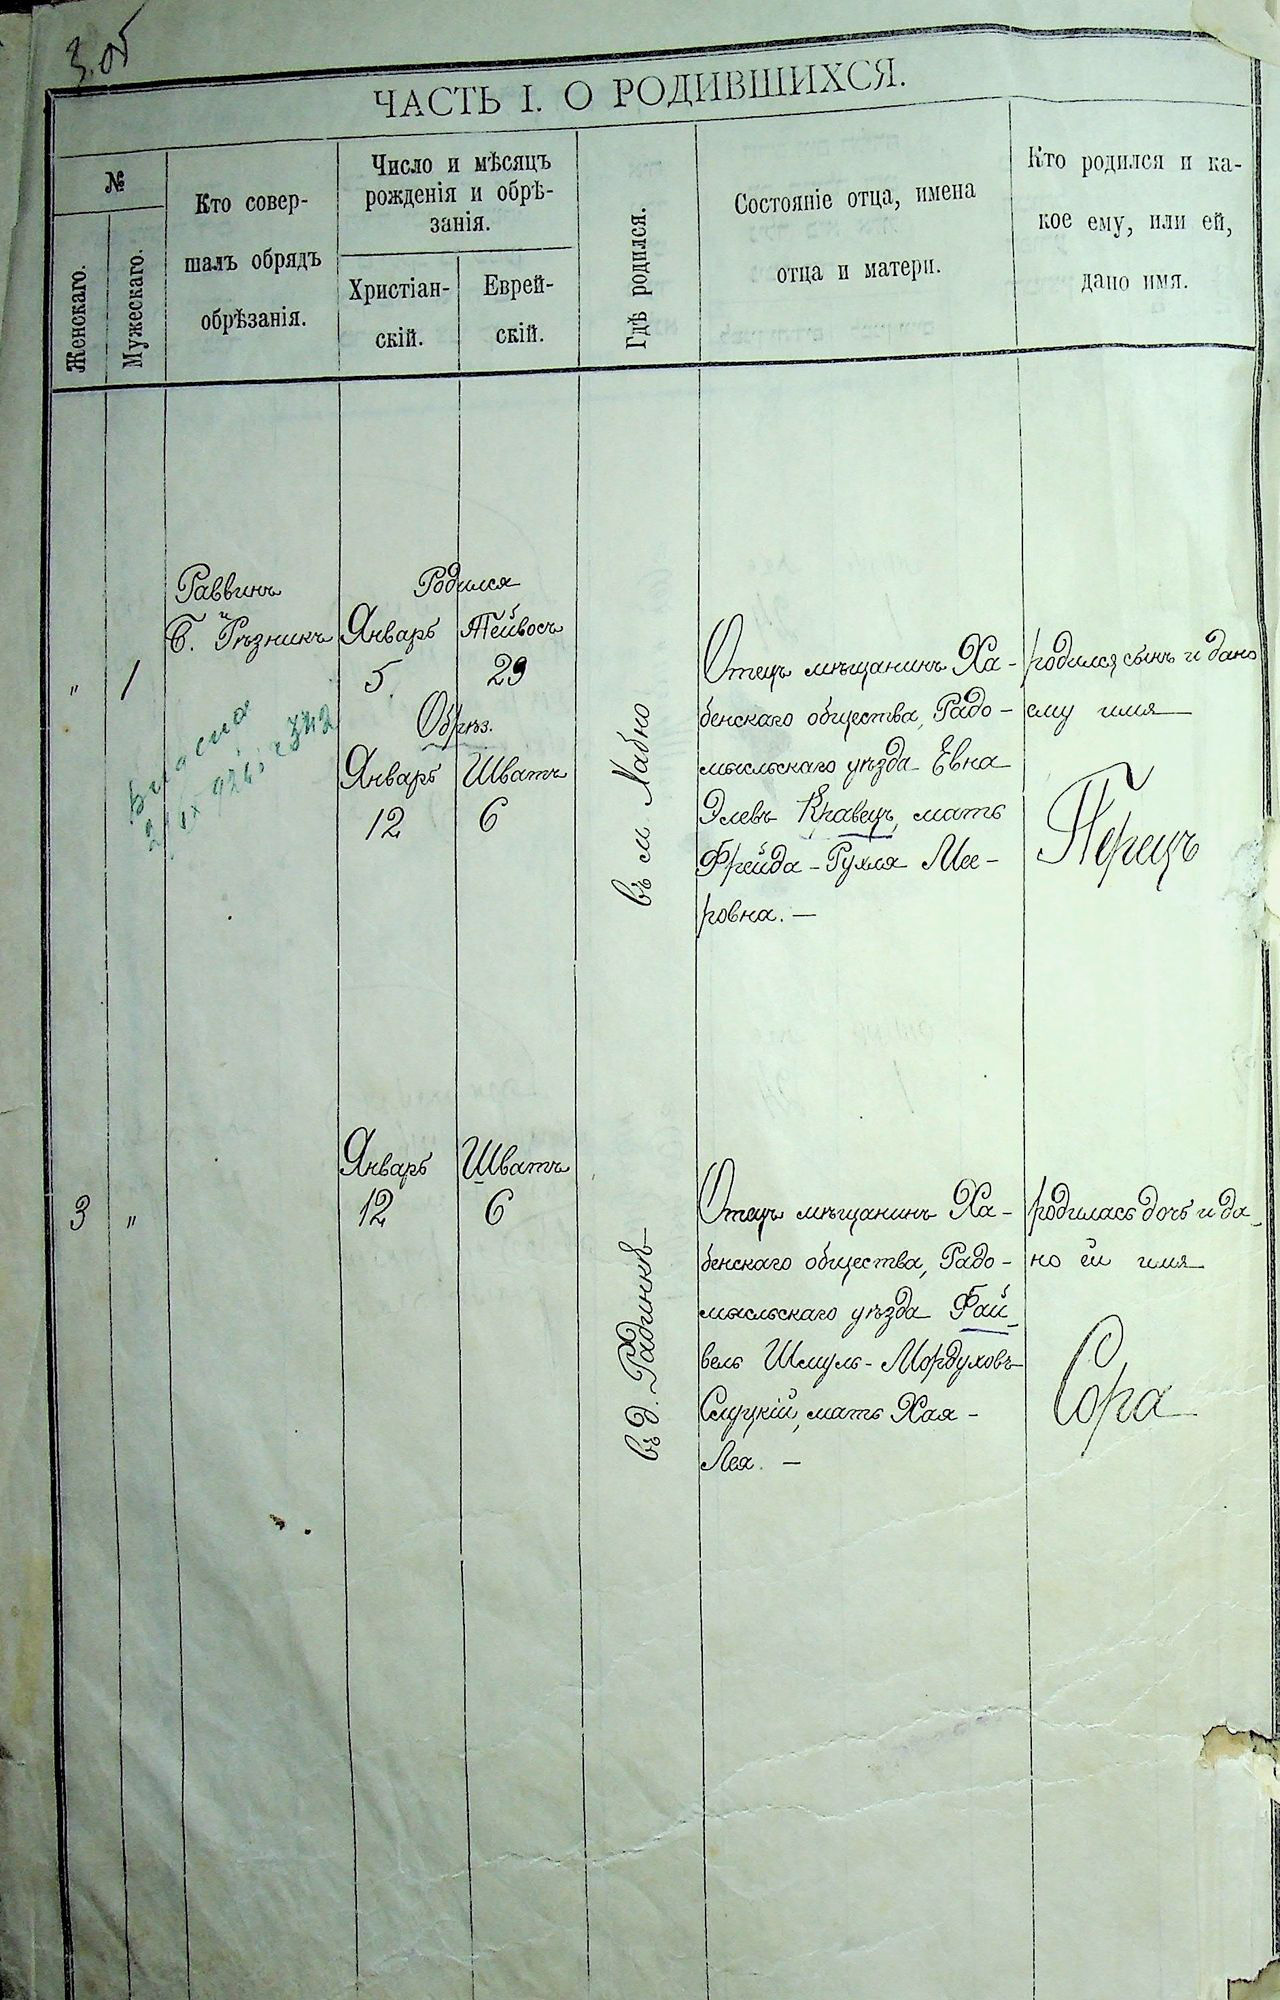 3 об
ЧАСТЬ I. О РОДИВШИХСЯ.
№
Женскаго.
Мужескаго.
Кто совер-
шалъ обрядъ
обрѣзанія.
Число и мѣсяцъ
рожденія и обрѣ-
занія.
Христіан-
скій.
Еврей-
скій.
Гдѣ родился.
Состояніе отца, имена
отца и матери.
Кто родился и ка-
кое ему, или ей,
дано имя.
"
1
Раввинъ
и
Б. Рѣзникъ
Родился
Январь Тейвосъ
5 29
Обрѣз.
Январь Шватъ
12 6
въ м. Хабно
Отецъ мѣщанинъ Ха-
бенскаго общества, Радо-
мысльскаго уѣзда Евна
Элевъ Кравецъ, мать
Фрейда-Рухля Мее-
ровна. —
родился сынъ и дано
ему имя
Перецъ
3
"
Январь Шватъ
12 6
въ д. Радинкѣ
Отецъ мѣщанинъ Ха-
бенскаго общества, Радо-
мысльскаго уѣзда Фай-
вель Шмуль-Мордуховъ
Слуцкій, мать Хая-
Лея. —
родилась дочь и да-
но ей имя
Сора